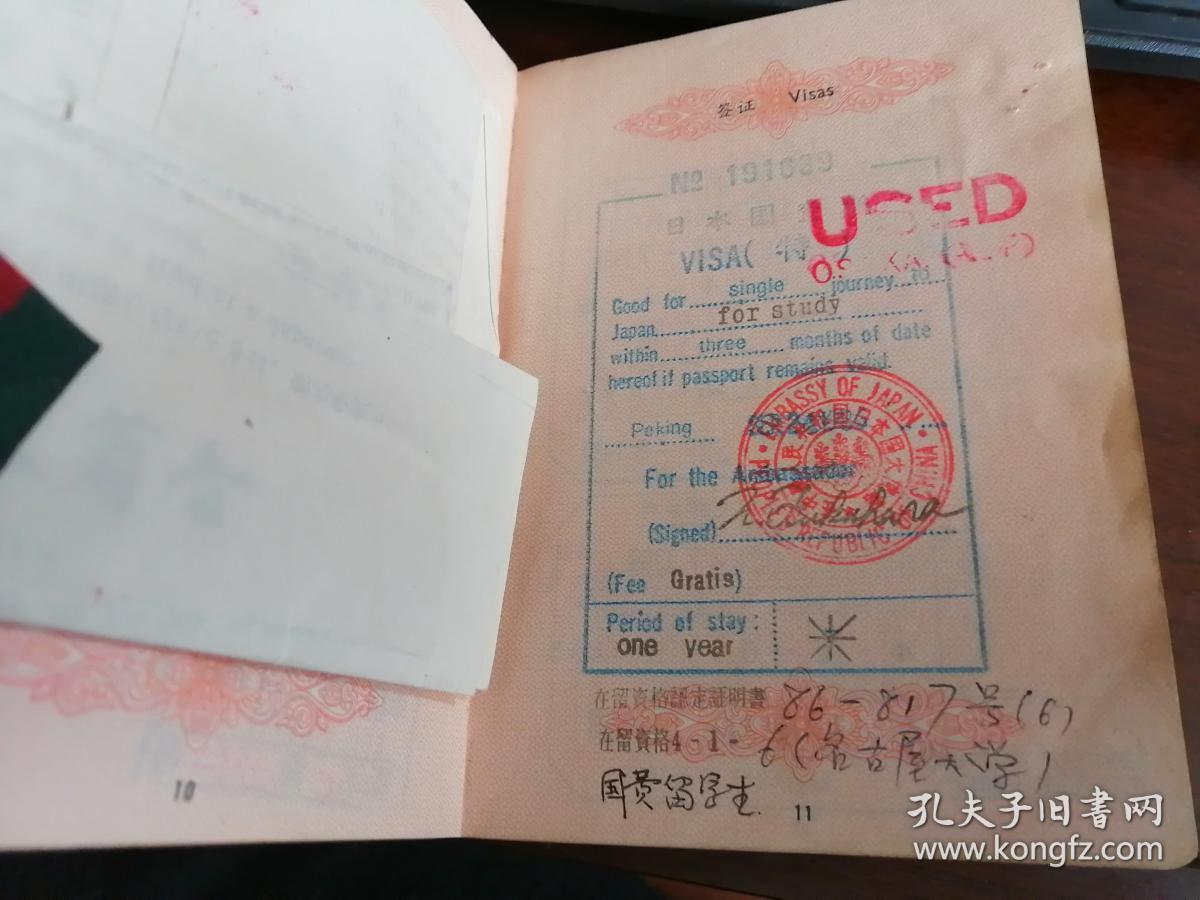 签证 Visas
№ 191639
日本国
USED
VISA( 特 )
Good for single journey to
Japan for study
within three months of date
hereof if passport remains valid.
EMBASSY OF JAPAN
CHINA
REPUBLIC
Peking
For the Ambassador
(Signed)
(Fee Gratis)
Period of stay:
one year
在留資格認定証明書 86-817号(6)
在留資格4-1-6(名古屋大学)
国費留学生
10
11
孔夫子旧书网
www.kongfz.com